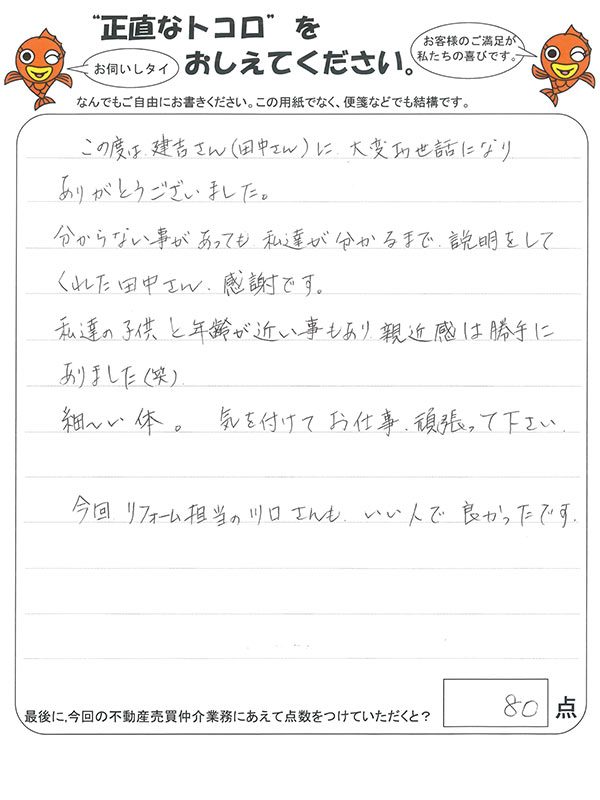 “正直なトコロ”を
おしえてください。
お伺いしタイ
お客様のご満足が
私たちの喜びです。
なんでもご自由にお書きください。この用紙でなく、便箋などでも結構です。
この度は、建吉さん(田中さん)に、大変お世話になり
ありがとうございました。
分からない事があっても、私達が分かるまで、説明をして
くれた田中さん、感謝です。
私達の子供と年齢が近い事もあり、親近感は勝手に
ありました(笑)
細〜い体。 気を付けてお仕事、頑張って下さい。
今回、リフォーム担当の川口さんも、いい人で良かったです。
最後に、今回の不動産売買仲介業務にあえて点数をつけていただくと?
80 点